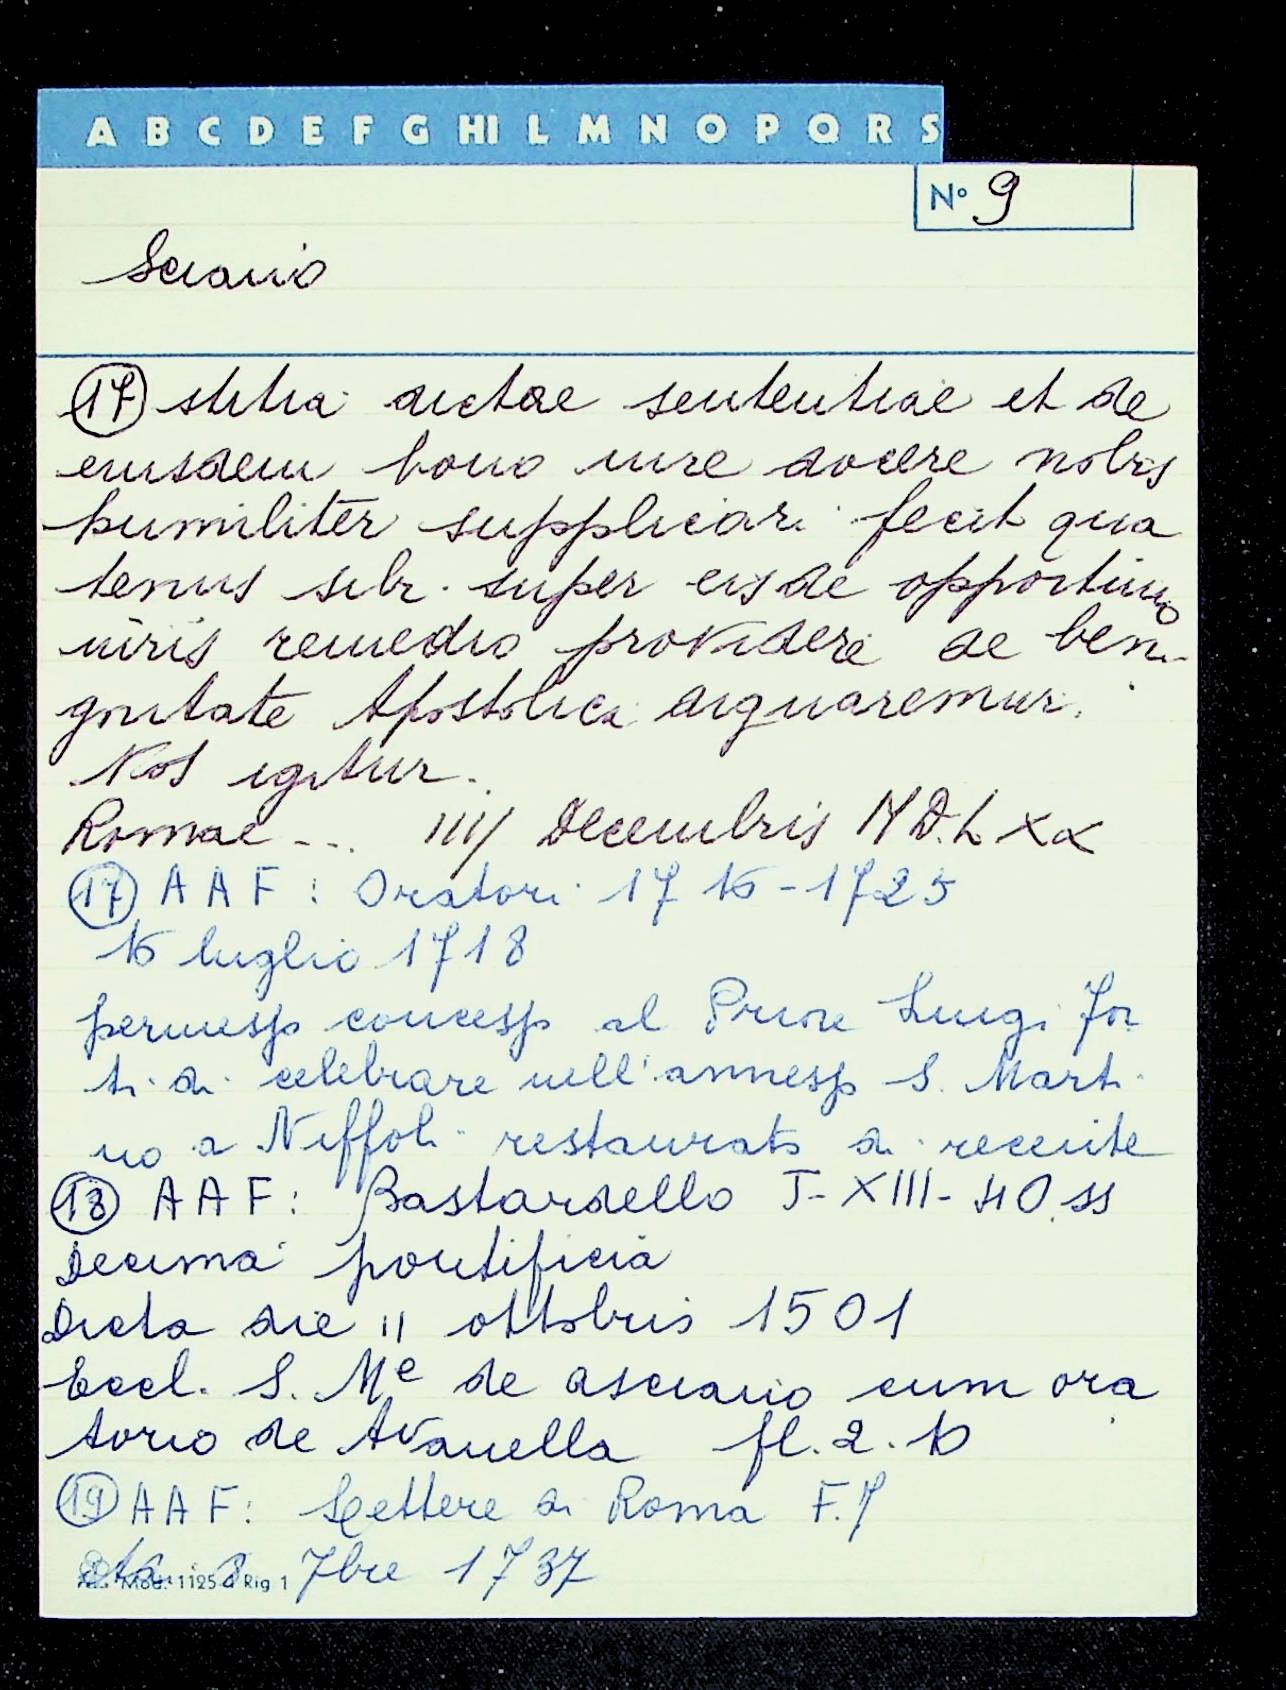 A B C D E F G HI L M N O P Q R S
N° 9
Sciano
(17) stitia dictae sententiae et de
eiusdem bono iure docere nobis
humiliter supplicari fecit qua
tenus sibi super eisde opportuno
iuris remedio providere de beni-
gnitate Apostolica dignaremur.
Nos igitur.
Romae ... IIII Decembris MD.LXX
(17) AAF: Oratori 1716-1725
16 luglio 1718
permesso concesso al Priore Luigi For
ti di celebrare nell'annesso S. Marti
no a Niffoli restaurato di recente
(18) AAF: Bastardello I-XIII-40.ss
Decima pontificia
Dicta die 11 ottobris 1501
Eccl. S. Me de asciano cum ora
torio de Avanella fl. 2. 10
(19) AAF: Lettere di Roma F. 7
7bre 1737
Mod. 1125 Rig 1